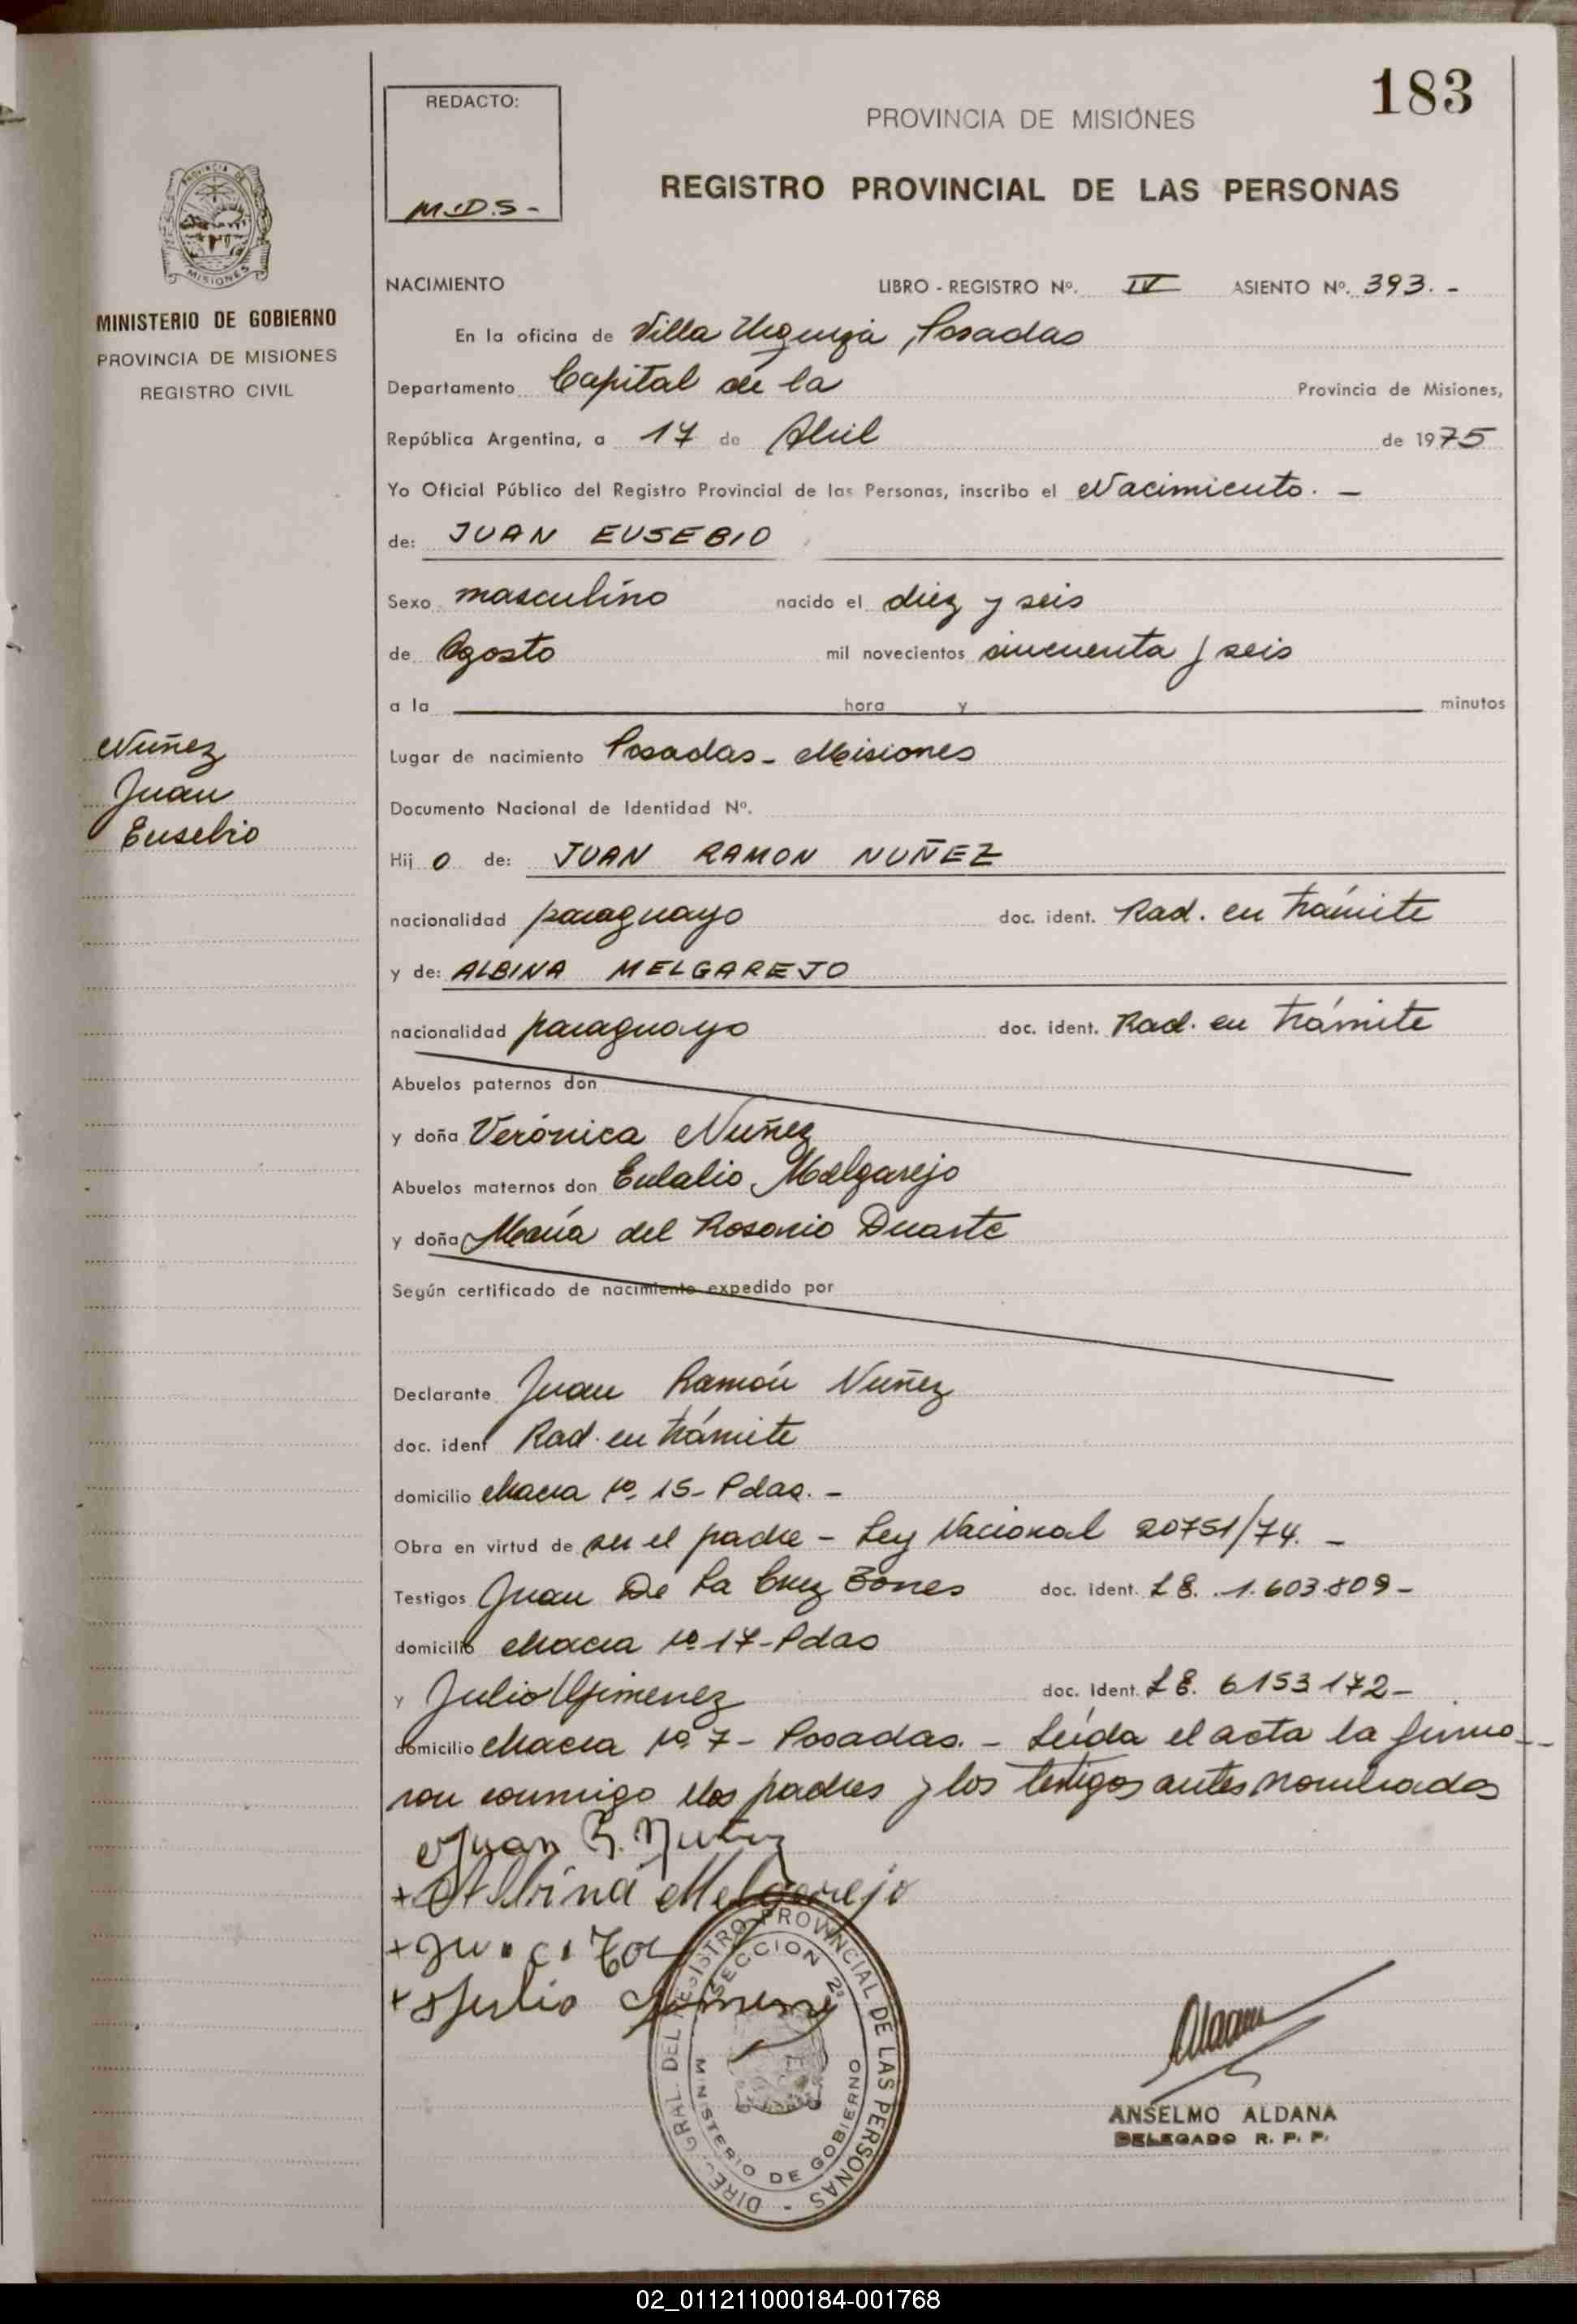 183
REDACTO:
M.D.S-
PROVINCIA DE MISIONES
REGISTRO PROVINCIAL DE LAS PERSONAS
PROVINCIA DE
MISIONES
MINISTERIO DE GOBIERNO
PROVINCIA DE MISIONES
REGISTRO CIVIL
NACIMIENTO LIBRO - REGISTRO Nº. IV ASIENTO Nº. 393. -
En la oficina de Villa Urquiza, Posadas
Departamento Capital de la Provincia de Misiones,
República Argentina, a 17 de Abril de 1975
Yo Oficial Público del Registro Provincial de las Personas, inscribo el Nacimiento. -
de: JUAN EUSEBIO
Sexo masculino nacido el diez y seis
de Agosto mil novecientos cincuenta y seis
a la hora y minutos
Nuñez
Juan
Eusebio
Lugar de nacimiento Posadas - Misiones
Documento Nacional de Identidad Nº.
Hij o de: JUAN RAMON NUÑEZ
nacionalidad paraguayo doc. ident. Rad. en trámite
y de: ALBINA MELGAREJO
nacionalidad paraguayo doc. ident. Rad. en trámite
Abuelos paternos don
y doña Verónica Nuñez
Abuelos maternos don Eulalio Melgarejo
y doña María del Rosario Duarte
Según certificado de nacimiento expedido por
Declarante Juan Ramón Nuñez
doc. ident Rad. en trámite
domicilio chacra Nº 15- Pdas. -
Obra en virtud de ser el padre - Ley Nacional 20751/74. -
Testigos Juan De La Cruz doc. ident. L E. 1.603.809-
domicilio chacra Nº 17-Pdas
y Julio Gimenez doc. Ident. L E. 6153172-
domicilio chacra Nº 7- Posadas. - Leída el acta la firma-
ron conmigo los padres y los testigos antes nombrados
Juan R. Nuñez
+ Albina Melgarejo
+ Julio Gimenez
DIREC. GRAL. DEL REGISTRO PROVINCIAL DE LAS PERSONAS -
SECCION 2ª
MINISTERIO DE GOBIERNO
ANSELMO ALDANA
DELEGADO R. P. P.
02_011211000184-001768